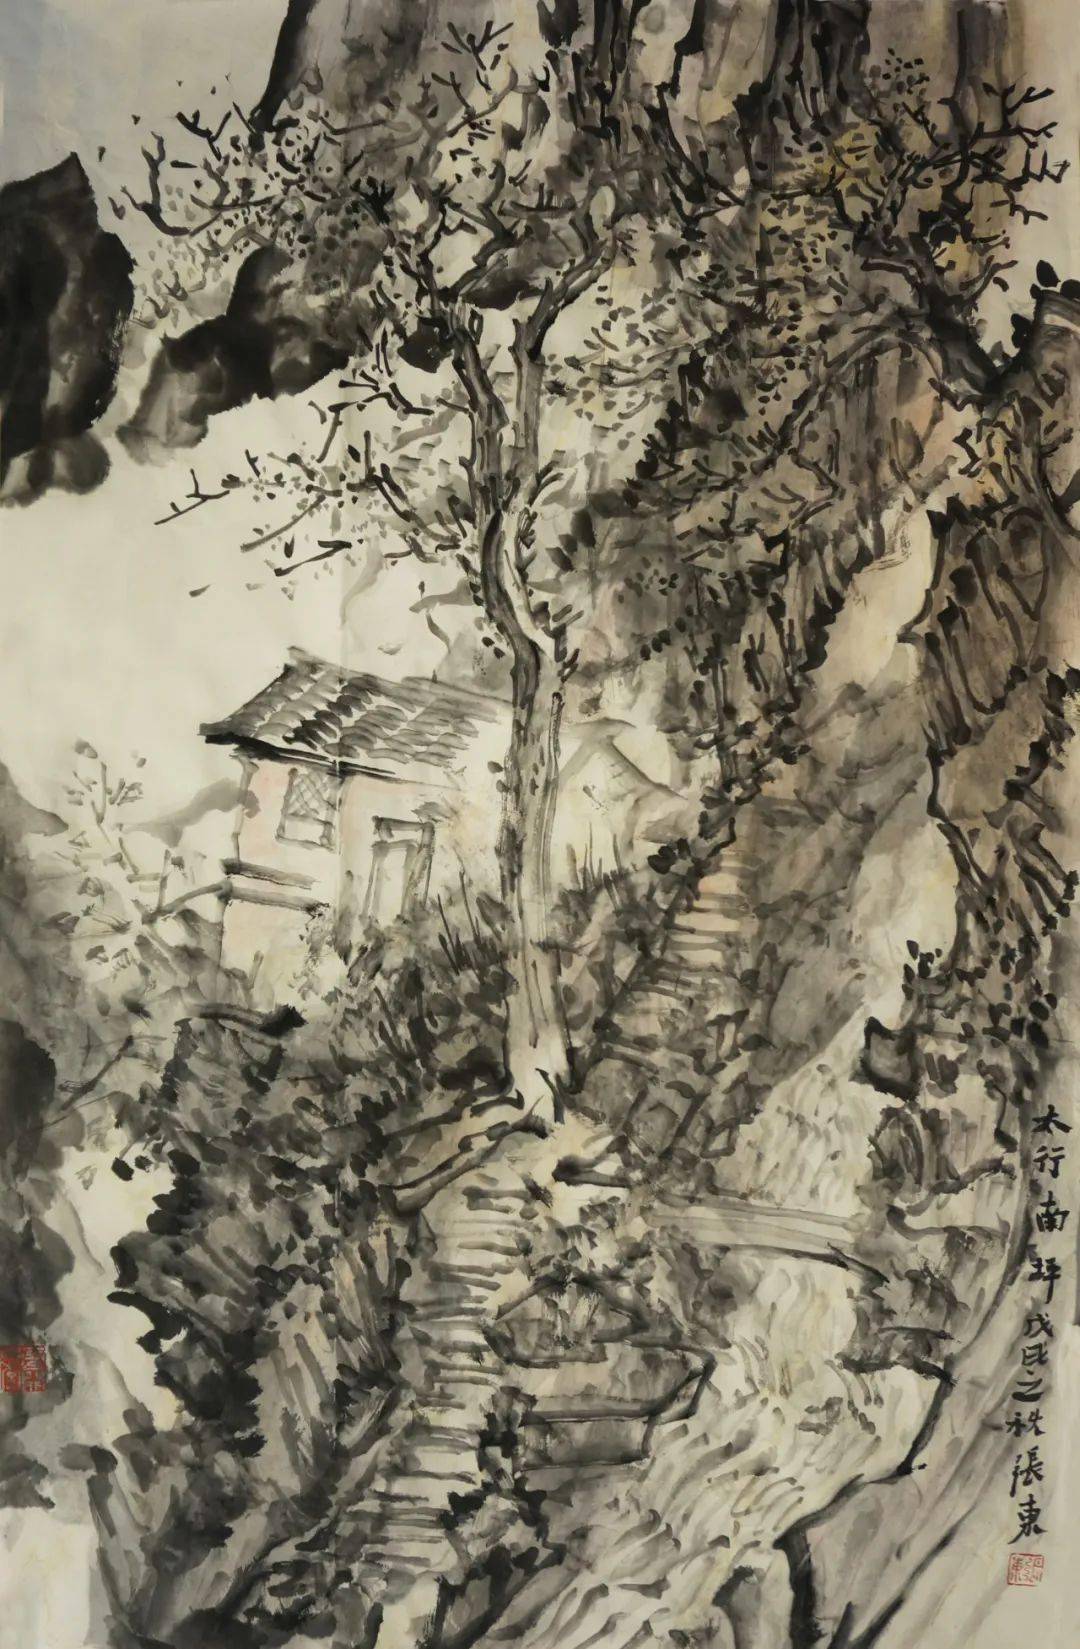 太行南坪戊戌之秋張東
張東